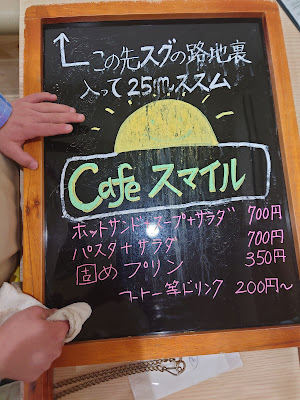 この先スグの路地裏
入って25m.ススム
Cafe スマイル
ホットサンド+スープ+サラダ 700円
パスタ+サラダ 700円
固めプリン 350円
コーヒー等ドリンク 200円~